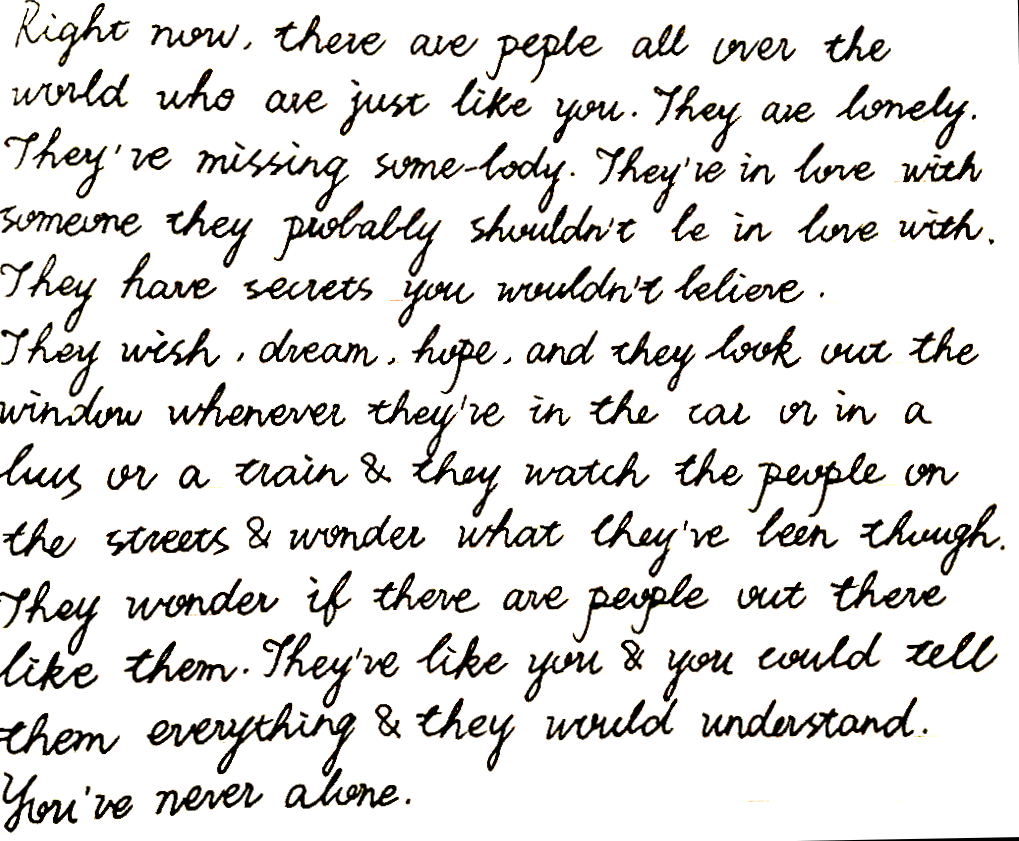 Right now, there are peple all over the
world who are just like you. They are lonely.
They're missing some-body. They're in love with
someone they probably shouldn't be in love with.
They have secrets you wouldn't believe.
They wish, dream, hope, and they look out the
window whenever they're in the car or in a
bus or a train & they watch the people on
the streets & wonder what they've been though.
They wonder if there are people out there
like them. They're like you & you could tell
them everything & they would understand.
You're never alone.